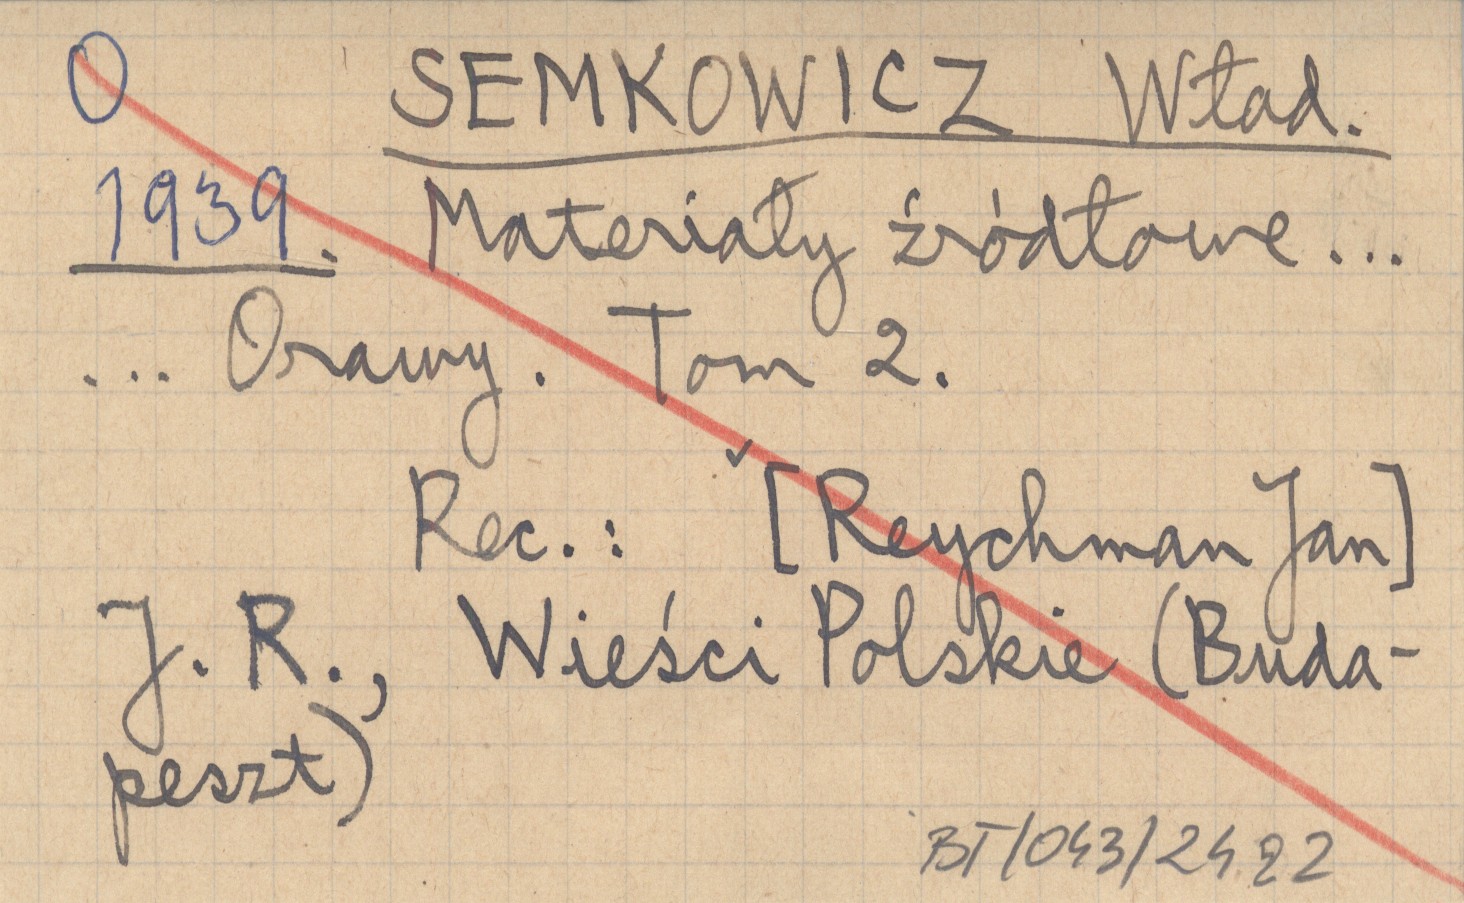 O SEMKOWICZ Wład.
1939. Materiały źródłowe...
... Orawy. Tom 2.
Rec.: [Reychman Jan]
J. R., Wieści Polskie (Buda-
peszt)
BT/043/2422